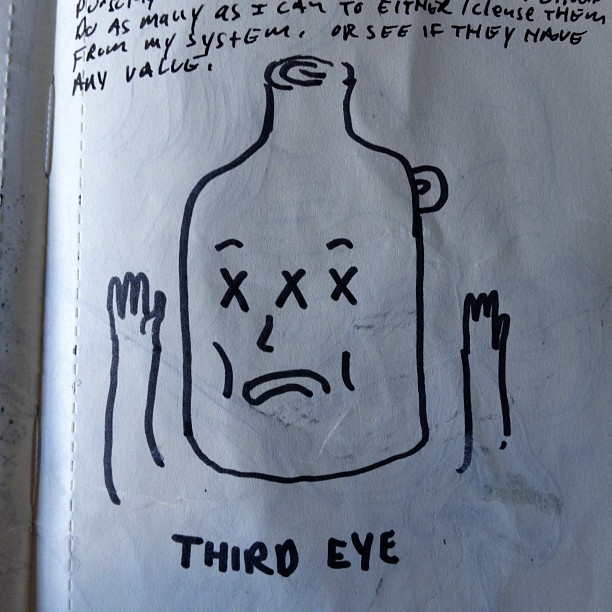 DO AS MANY AS I CAN TO EITHER / CLEUSE THEM
FROM MY SYSTEM. OR SEE IF THEY HAVE
ANY VALUE.
X X X
THIRD EYE